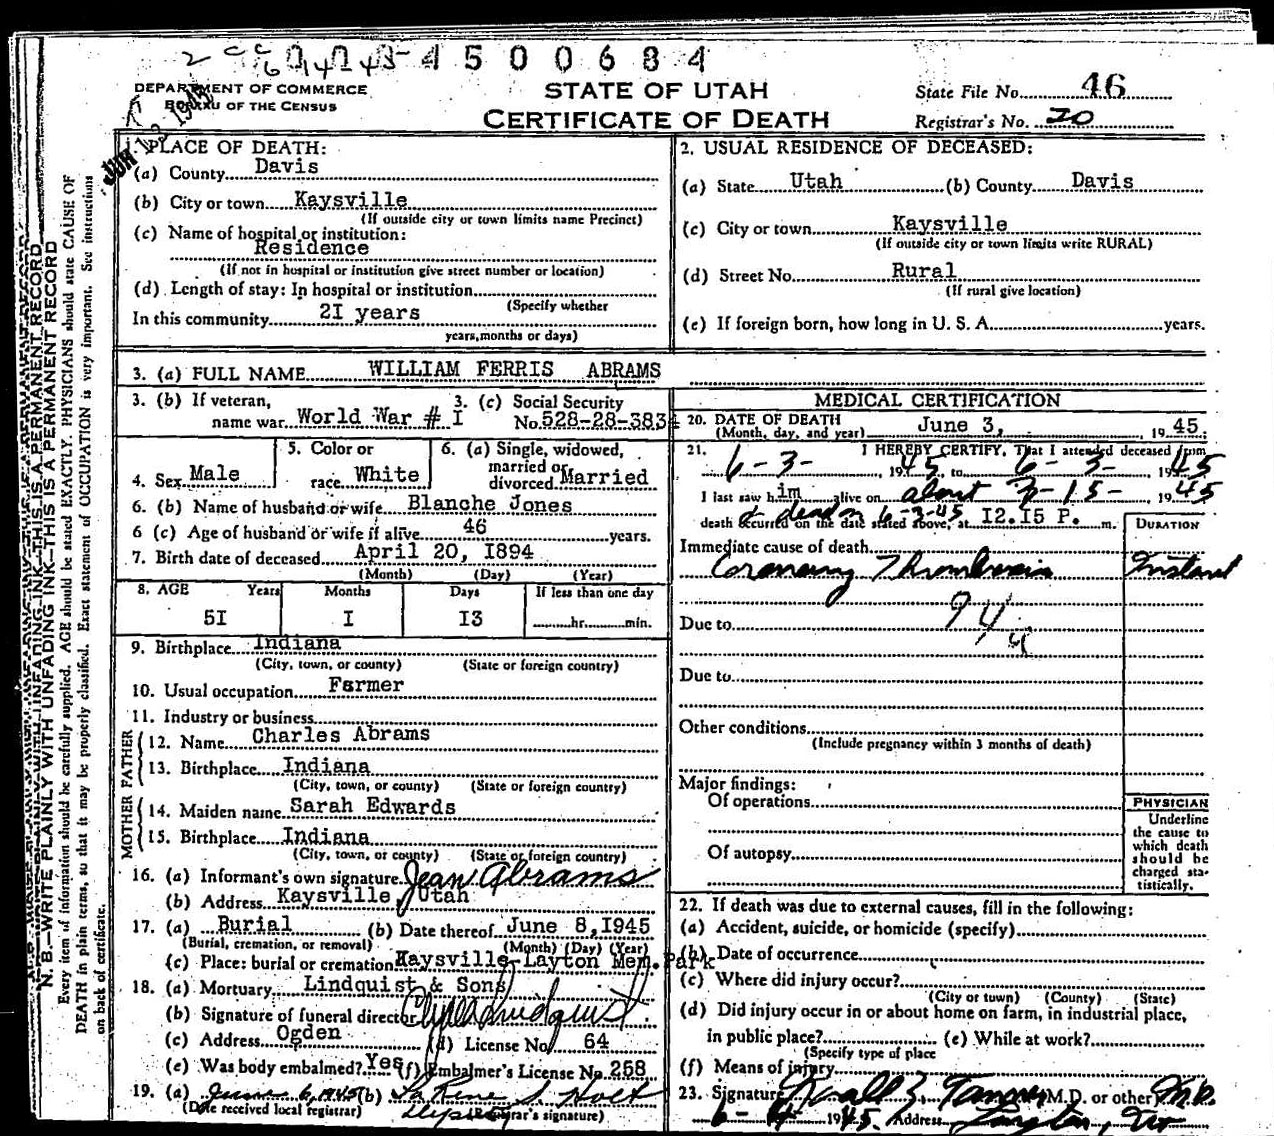 4500684
DEPARTMENT OF COMMERCE
BUREAU OF THE CENSUS
STATE OF UTAH
CERTIFICATE OF DEATH
State File No. 46
Registrar's No. 20
N. B.—WRITE PLAINLY WITH UNFADING INK—THIS IS A PERMANENT RECORD
Every item of information should be carefully supplied. AGE should be stated EXACTLY. PHYSICIANS should state CAUSE OF
DEATH in plain terms, so that it may be properly classified. Exact statement of OCCUPATION is very important. See instructions
on back of certificate.
1. PLACE OF DEATH:
(a) County Davis
(b) City or town Kaysville
(If outside city or town limits name Precinct)
(c) Name of hospital or institution:
Residence
(If not in hospital or institution give street number or location)
(d) Length of stay: In hospital or institution
(Specify whether
In this community 2I years
years, months or days)
2. USUAL RESIDENCE OF DECEASED:
(a) State Utah (b) County Davis
(c) City or town Kaysville
(If outside city or town limits write RURAL)
(d) Street No. Rural
(If rural give location)
(e) If foreign born, how long in U. S. A. years.
3. (a) FULL NAME WILLIAM FERRIS ABRAMS
3. (b) If veteran,
name war World War # I
3. (c) Social Security
No. 528-28-3834
4. Sex Male
5. Color or
race White
6. (a) Single, widowed,
married or
divorced Married
6. (b) Name of husband or wife Blanche Jones
6 (c) Age of husband or wife if alive 46 years.
7. Birth date of deceased April 20, I894
(Month) (Day) (Year)
8. AGE Years Months Days If less than one day
5I I I3 hr. min.
9. Birthplace Indiana
(City, town, or county) (State or foreign country)
10. Usual occupation Farmer
11. Industry or business
FATHER
12. Name Charles Abrams
13. Birthplace Indiana
(City, town, or county) (State or foreign country)
MOTHER
14. Maiden name Sarah Edwards
15. Birthplace Indiana
(City, town, or county) (State or foreign country)
16. (a) Informant's own signature Jean Abrams
(b) Address Kaysville, Utah
17. (a) Burial (b) Date thereof June 8, I945
(Burial, cremation, or removal) (Month) (Day) (Year)
(c) Place: burial or cremation Kaysville-Layton Mem. Park
18. (a) Mortuary Lindquist & Sons
(b) Signature of funeral director
(c) Address Ogden (d) License No. 64
(e) Was body embalmed? Yes (f) Embalmer's License No. 258
19. (a) June 6, 1945 (b) LaRene S. Holt
Deputy
(Date received local registrar) (Registrar's signature)
MEDICAL CERTIFICATION
20. DATE OF DEATH
(Month, day, and year) June 3, 19 45.
21. I HEREBY CERTIFY, That I attended deceased from
6-3- 1945, to 6-3- 1945
I last saw him alive on about 3-15- 1945
& dead on 6-3-45
death occurred on the date stated above, at I2.I5 P. m.
DURATION
Immediate cause of death
Coronary Thrombosis Instant
94
Due to
Due to
Other conditions
(Include pregnancy within 3 months of death)
Major findings:
Of operations
Of autopsy
PHYSICIAN
Underline
the cause to
which death
should be
charged sta-
tistically.
22. If death was due to external causes, fill in the following:
(a) Accident, suicide, or homicide (specify)
(b) Date of occurrence
(c) Where did injury occur?
(City or town) (County) (State)
(d) Did injury occur in or about home on farm, in industrial place,
in public place? (e) While at work?
(Specify type of place
(f) Means of injury
23. Signature Tanner M.D. or other M.D.
6-4 1945. Address Layton, Ut